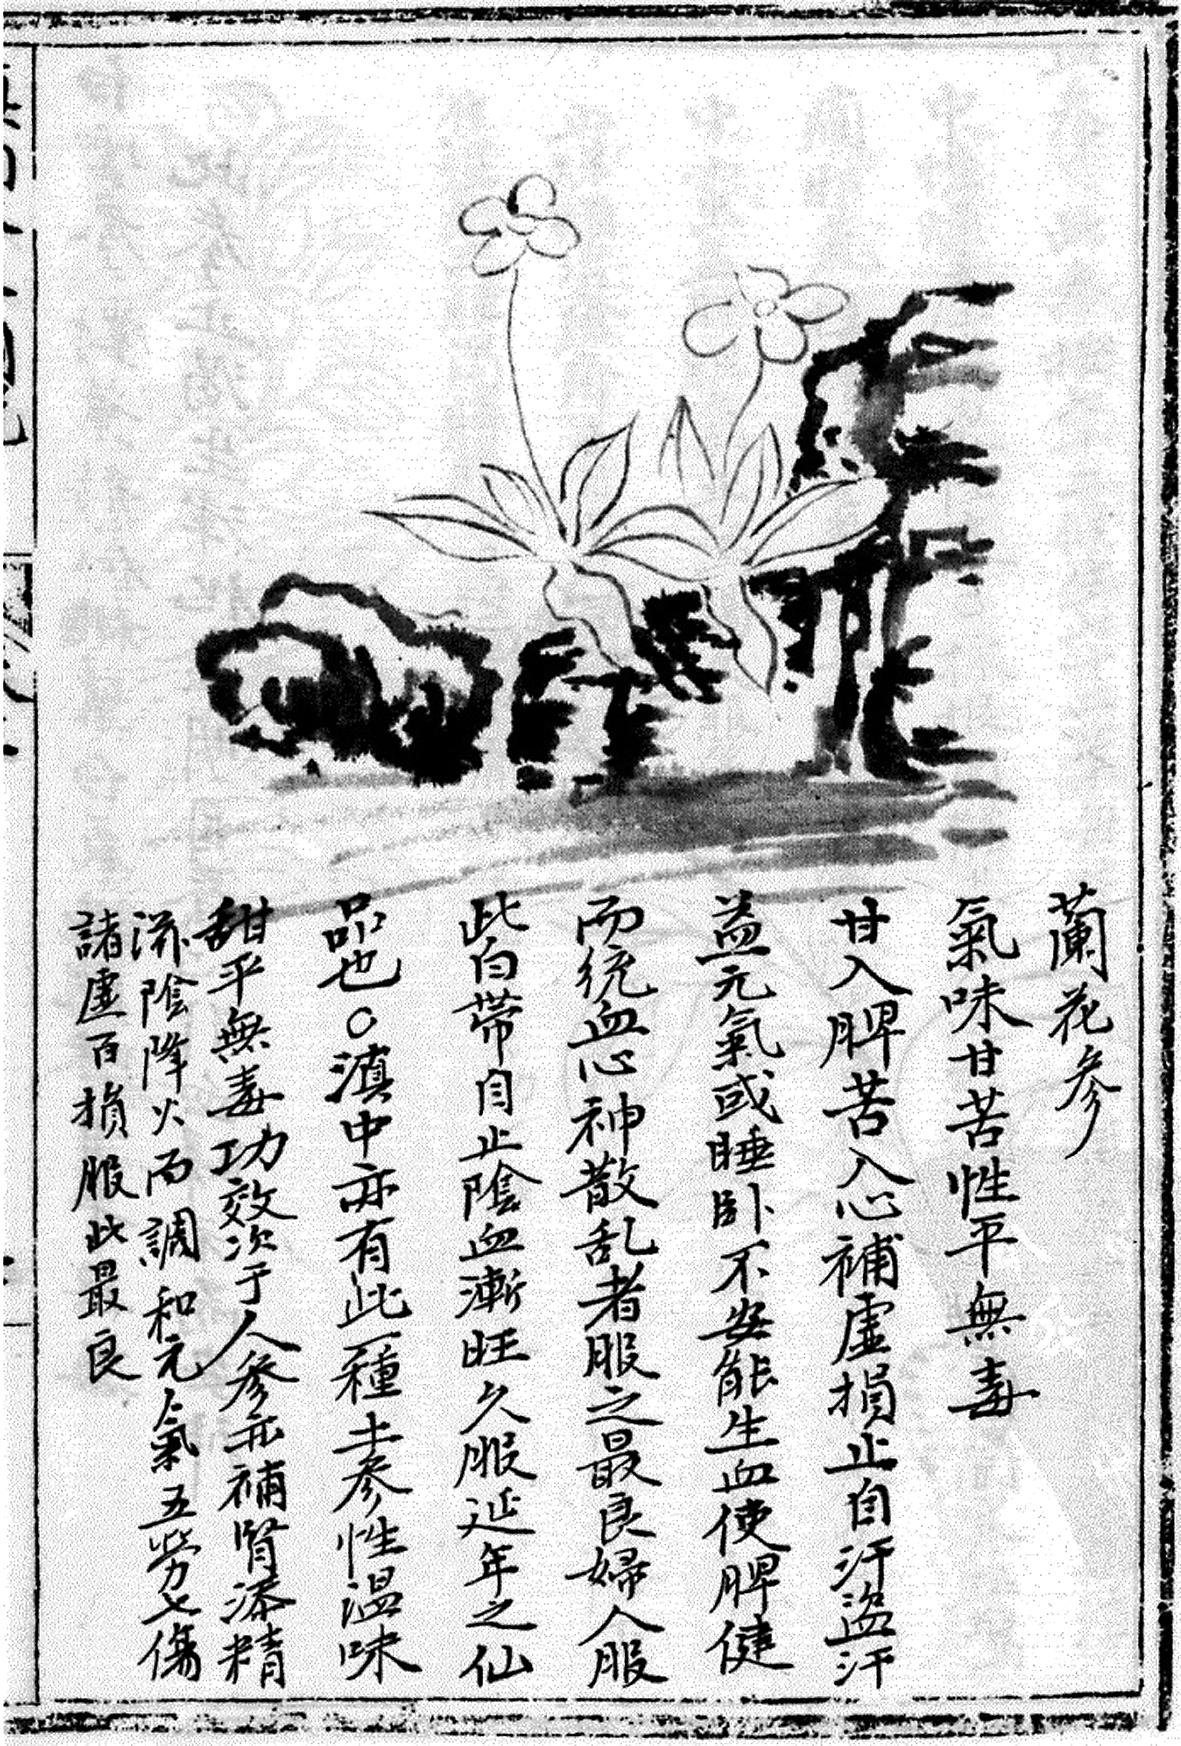 蘭花參
氣味甘苦性平無毒
甘入脾苦入心補虛損止自汗盜汗
益元氣或睡卧不安能生血使脾健
而統血心神散乱者服之最良婦人服
此白帶自止陰血漸旺久服延年之仙
品也○滇中亦有此一種土參性溫味
甜平無毒功效次于人參亦補腎添精
滋陰降火而調和元氣五勞七傷
諸虛百損服此最良